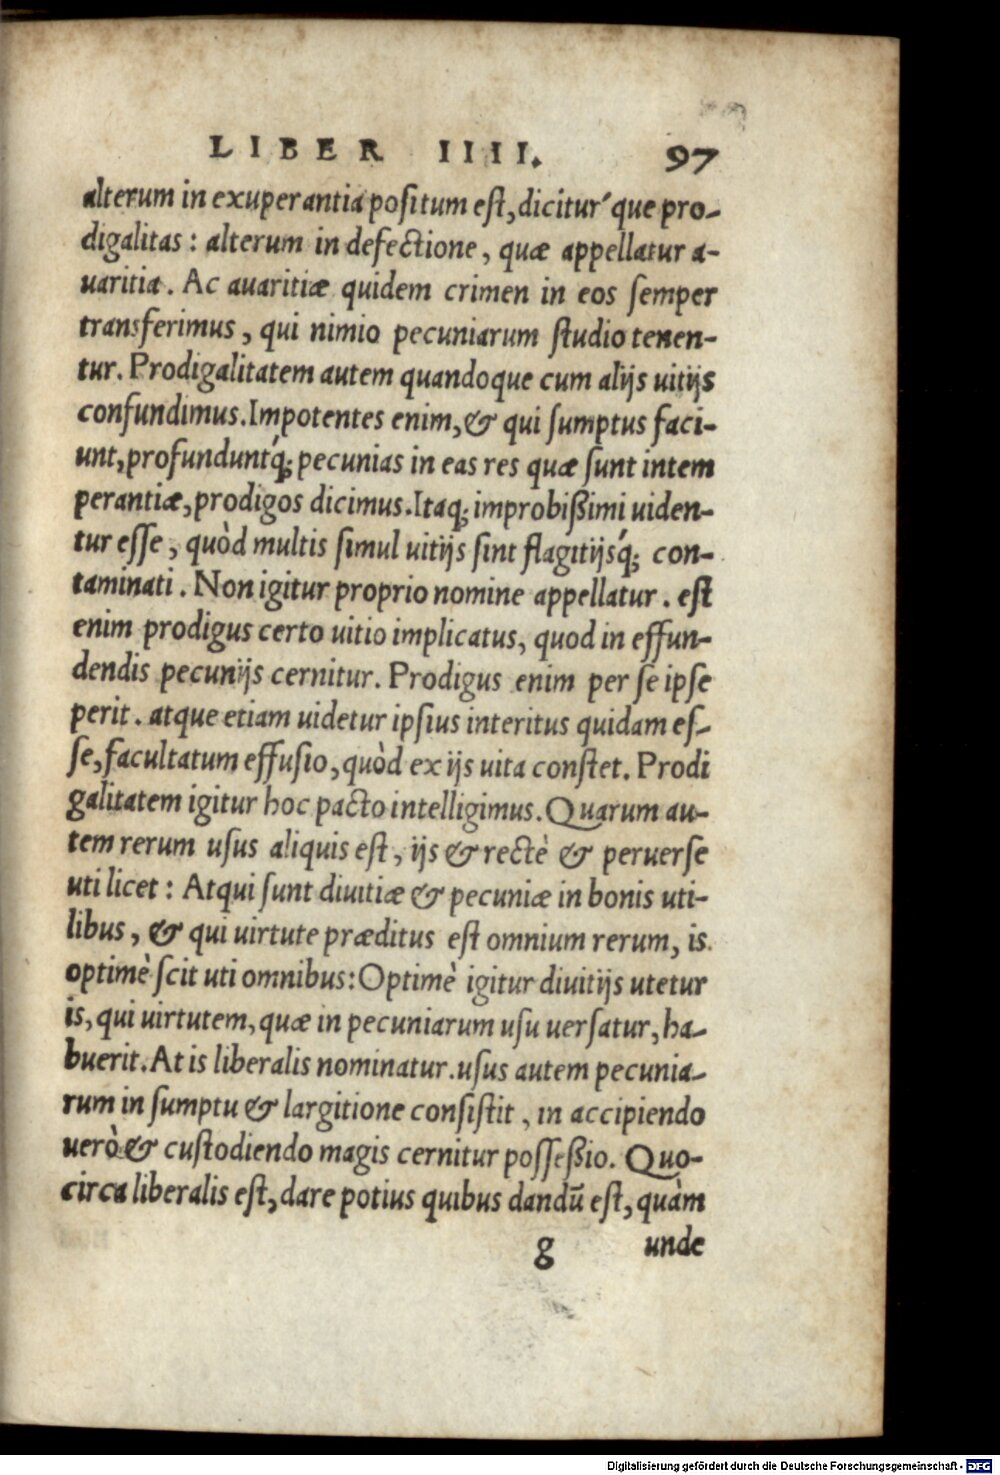 LIBER IIII. 97
alterum in exuperantia positum est, dicitur´que pro-
digalitas: alterum in defectione, quæ appellatur a-
uaritia. Ac auaritiæ quidem crimen in eos semper
transferimus, qui nimio pecuniarum studio tenen-
tur. Prodigalitatem autem quandoque cum alijs uitijs
confundimus. Impotentes enim, & qui sumptus faci-
unt, profundunt´q; pecunias in eas res quæ sunt intem
perantiæ, prodigos dicimus. Itaq; improbißimi uiden-
tur esse, quòd multis simul uitijs sint flagitijs´q; con-
taminati. Non igitur proprio nomine appellatur. est
enim prodigus certo uitio implicatus, quod in effun-
dendis pecunijs cernitur. Prodigus enim per se ipse
perit. atque etiam uidetur ipsius interitus quidam es-
se, facultatum effusio, quòd ex ijs uita constet. Prodi
galitatem igitur hoc pacto intelligimus. Quarum au-
tem rerum usus aliquis est, ijs & rectè & peruerse
uti licet: Atqui sunt diuitiæ & pecuniæ in bonis uti-
libus, & qui uirtute præditus est omnium rerum, is
optimè scit uti omnibus: Optimè igitur diuitijs utetur
is, qui uirtutem, quæ in pecuniarum usu uersatur, ha-
buerit. At is liberalis nominatur. usus autem pecunia-
rum in sumptu & largitione consistit, in accipiendo
uerò & custodiendo magis cernitur posseßio. Quo-
circa liberalis est, dare potius quibus dandū est, quàm
g unde
Digitalisierung gefördert durch die Deutsche Forschungsgemeinschaft - DFG